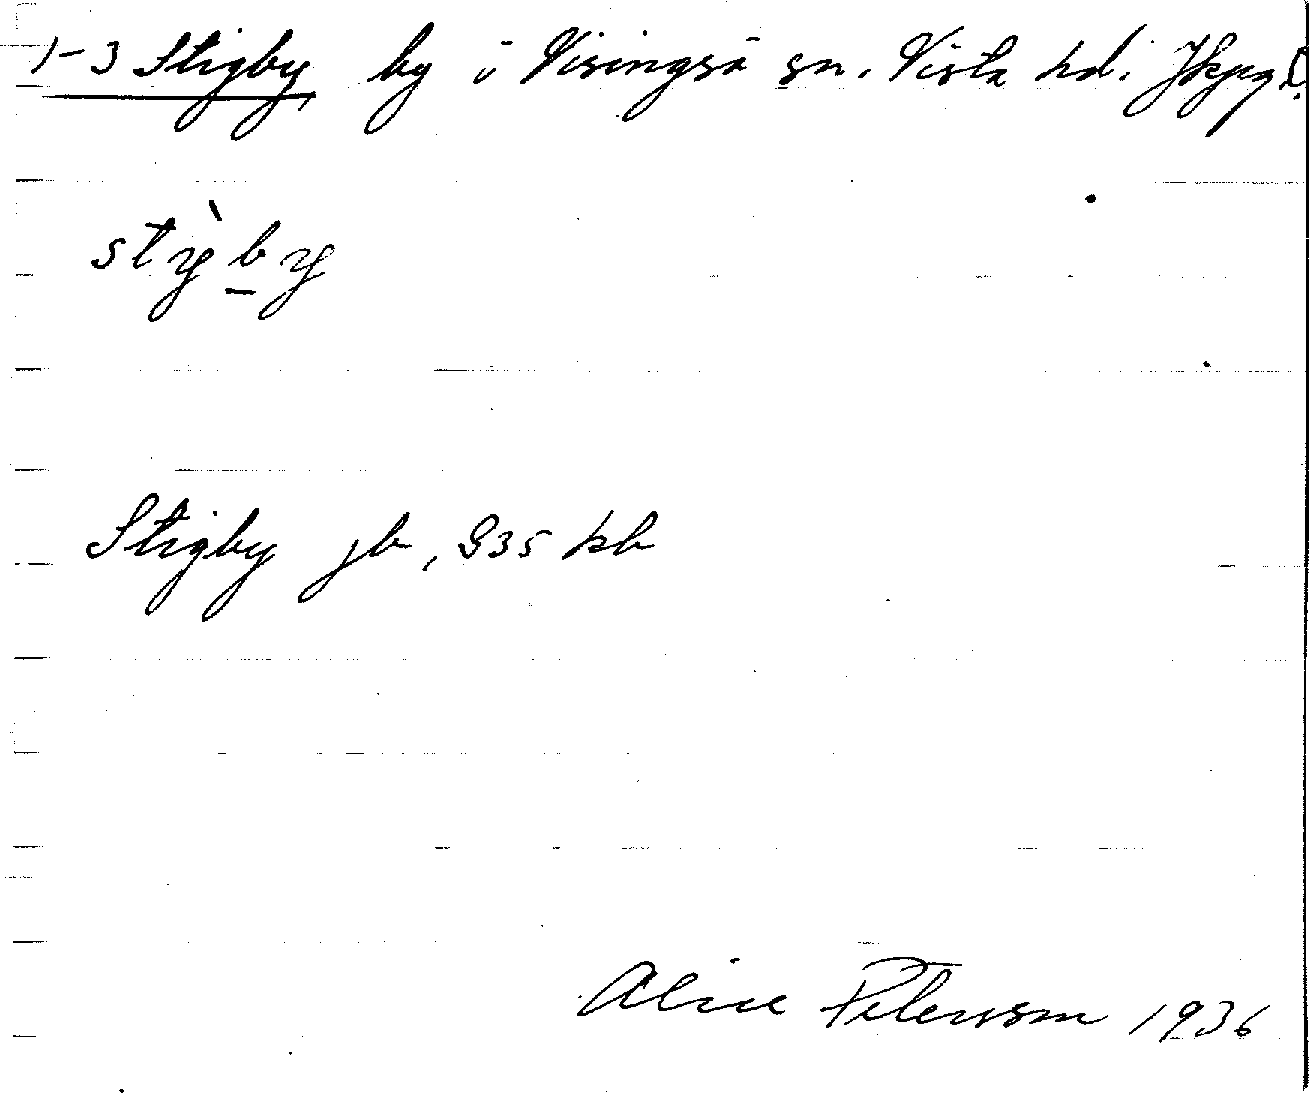 1-3 Stigby by i Visingsö sn. Vista hd. Jkpg L.
stỳby
Stigby jb, 935 kb
Alice Petersson 1936